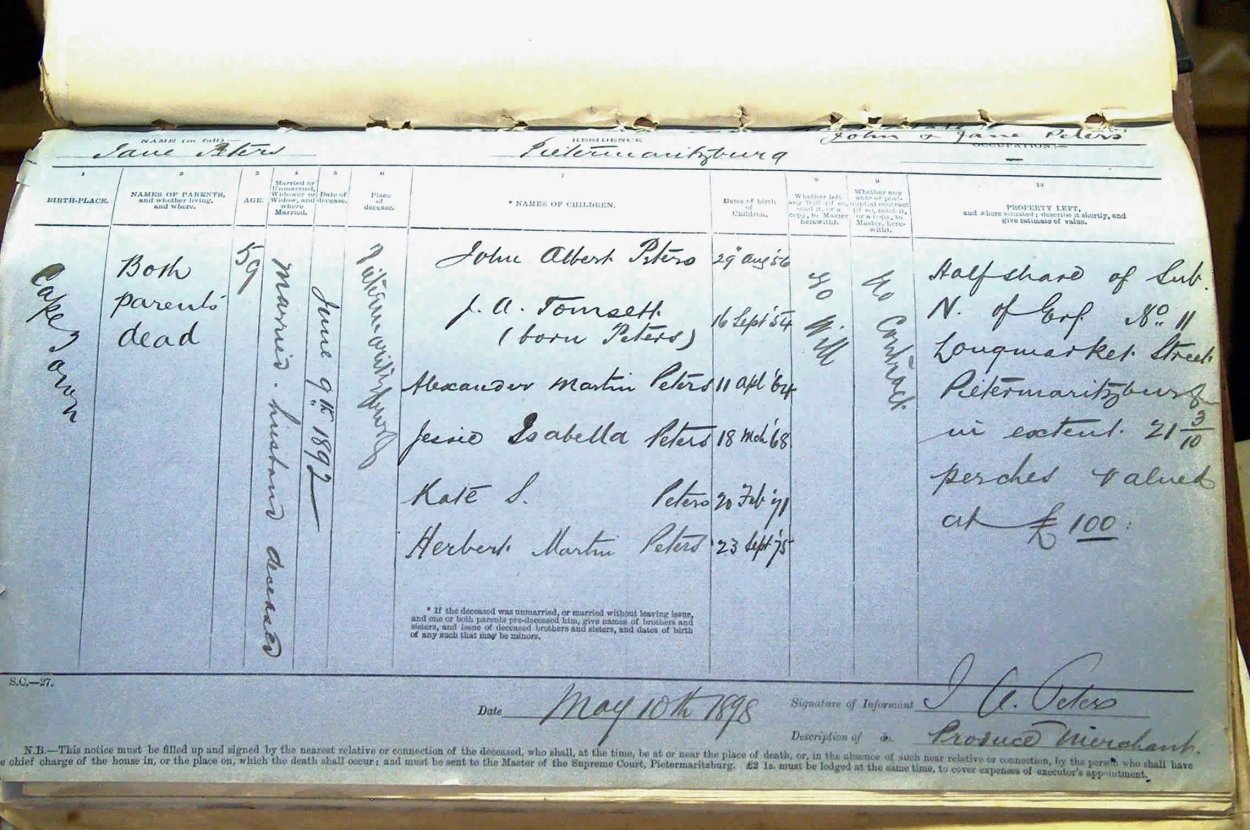 John & Jane Peters
NAME (in full) RESIDENCE OCCUPATION:—
Jane Peters Pietermaritzburg —
1 2 3 4 5 6 7 8 9 10
BIRTH-PLACE.
NAMES OF PARENTS,
and whether living,
and where.
AGE.
Married or
Unmarried,
Widower or
Widow, and
where
Married.
Date of
decease.
Place
of
decease.
* NAMES OF CHILDREN.
Dates of birth
of
Children.
Whether left
any Will (if so,
send it, or a
copy, to Master
herewith).
Whether any
able or post-
nuptial contract
(if so, send it,
or a copy, to
Master, here-
with).
PROPERTY LEFT,
and where situated; describe it shortly, and
give estimate of value.
Cape Town
Both
parents
dead
59
Married. husband deceased
June 9th. 1892
Pietermaritzburg
John Albert Peters 29" Aug '56
J. A. Tomsett 16 Sept '54
(born Peters)
Alexander Martin Peters 11 Apl '64
Jessie Isabella Peters 18 Mch '68
Kate S. Peters 20 Feb '71
Herbert Martin Peters 23 Sept '75
No Will
No Contract
Half share of Sub.
N. of Erf No. 11
Longmarket Street
Pietermaritzburg
in extent 21 3/10
perches valued
at £100:
* If the deceased was unmarried, or married without leaving issue,
and one or both parents pre-deceased him, give names of brothers and
sisters, and issue of deceased brothers and sisters, and dates of birth
of any such that may be minors.
S.C.—27.
Date May 10th 1898 Signature of Informant J. A. Peters
Description of do. Produce Merchant.
N.B.—This notice must be filled up and signed by the nearest relative or connection of the deceased, who shall, at the time, be at or near the place of death, or, in the absence of such near relative or connection, by the person who shall have
e chief charge of the house in, or the place on, which the death shall occur; and must be sent to the Master of the Supreme Court, Pietermaritzburg. £2 1s. must be lodged at the same time, to cover expenses of executor's appointment.